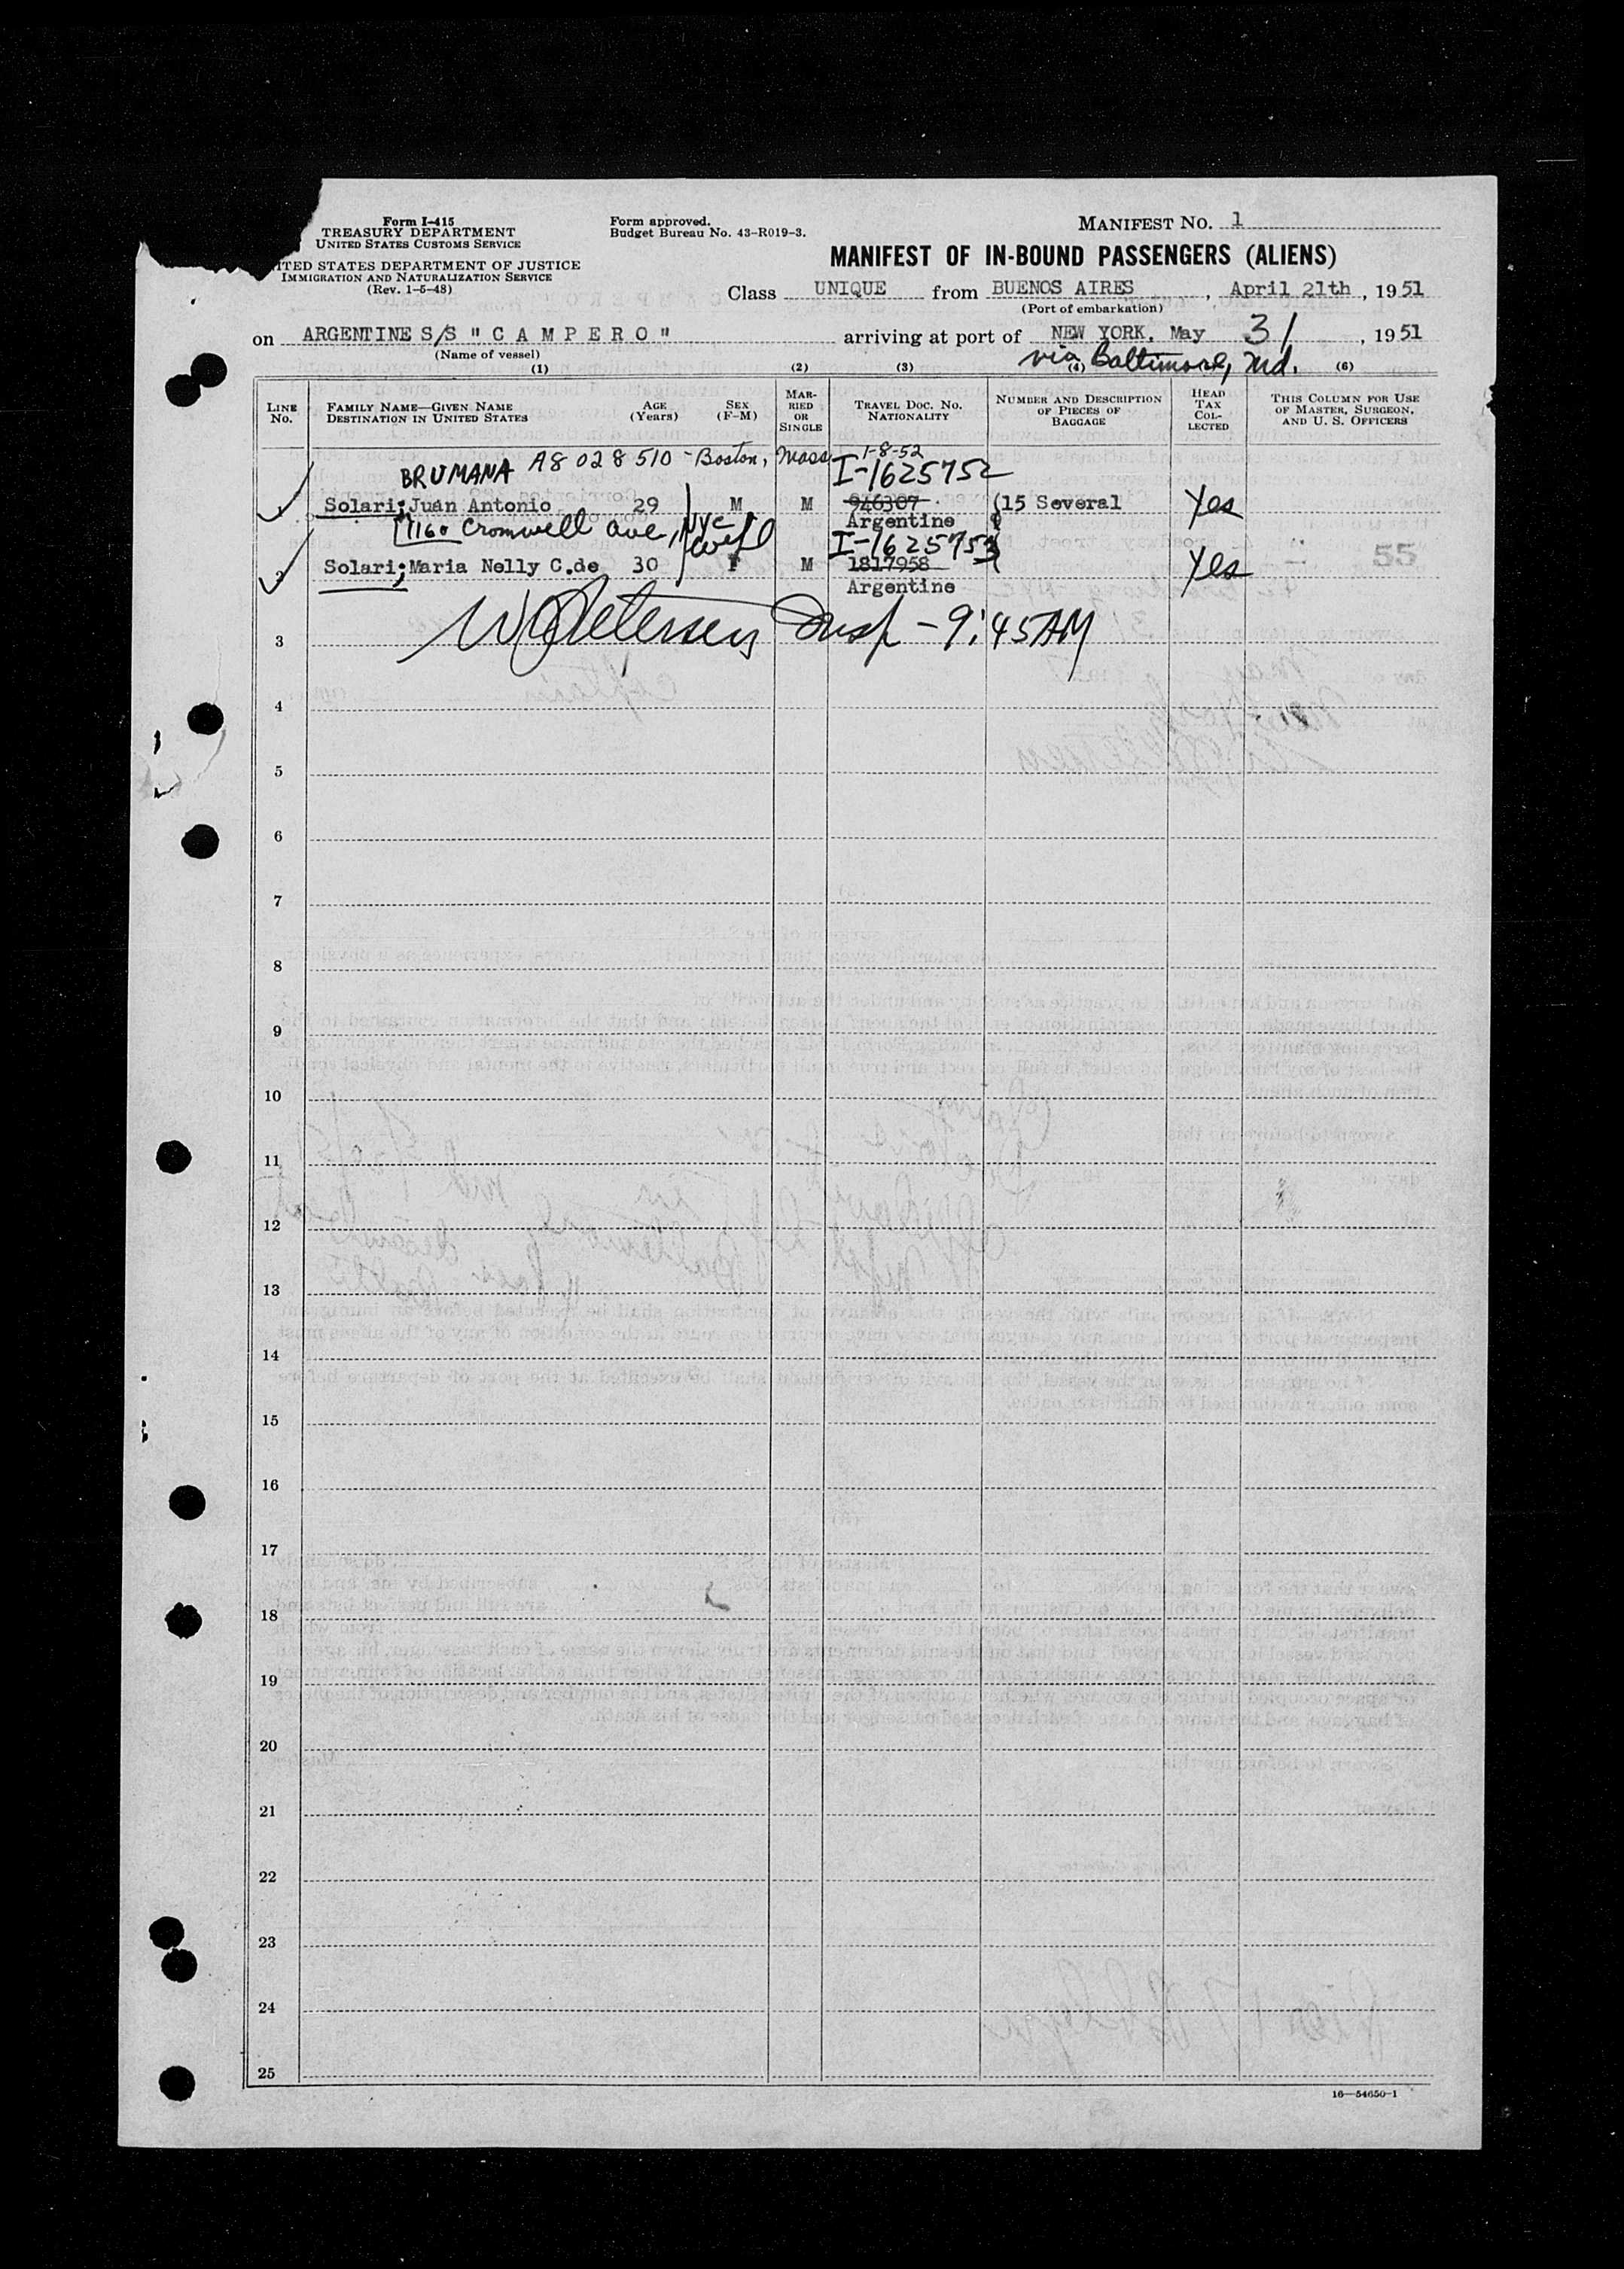 Form I-415
TREASURY DEPARTMENT
UNITED STATES CUSTOMS SERVICE
ITED STATES DEPARTMENT OF JUSTICE
IMMIGRATION AND NATURALIZATION SERVICE
(Rev. 1-5-48)
Form approved.
Budget Bureau No. 43-R019-3.
MANIFEST NO. 1
MANIFEST OF IN-BOUND PASSENGERS (ALIENS)
Class UNIQUE from BUENOS AIRES, April 21th, 1951
(Port of embarkation)
on ARGENTINE S/S " C A M P E R O " arriving at port of NEW YORK, May 31, 1951
(Name of vessel) via Baltimore, Md.
(1) (2) (3) (4) (6)
LINE NO.
FAMILY NAME—GIVEN NAME
DESTINATION IN UNITED STATES
AGE (Years)
SEX (F-M)
MARRIED OR SINGLE
TRAVEL DOC. NO.
NATIONALITY
NUMBER AND DESCRIPTION OF PIECES OF BAGGAGE
HEAD TAX COLLECTED
THIS COLUMN FOR USE OF MASTER, SURGEON, AND U. S. OFFICERS
A8 028 510 - Boston, Mass 1-8-52
BRUMANA I-1625752
Solari; Juan Antonio 29 M M 946307 (15 Several Yes
1160 Cromwell Ave, NYC Argentine
wife I-1625753
2 Solari; Maria Nelly C.de 30 F M 1817958 Yes
Argentine
55
3 Petersen Insp - 9:45 AM
4
5
6
7
8
9
10
11
12
13
14
15
16
17
18
19
20
21
22
23
24
25
16—54650-1